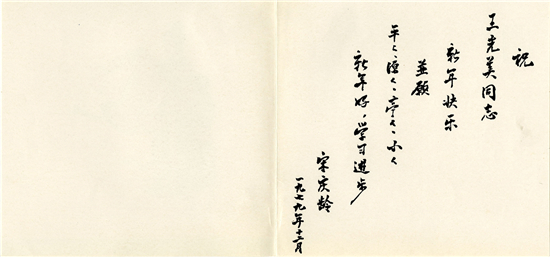 祝
王光美同志
新年快乐
並愿
平々源々、亭々、小々
新年好,学习進步
宋庆龄
一九七九年十二月